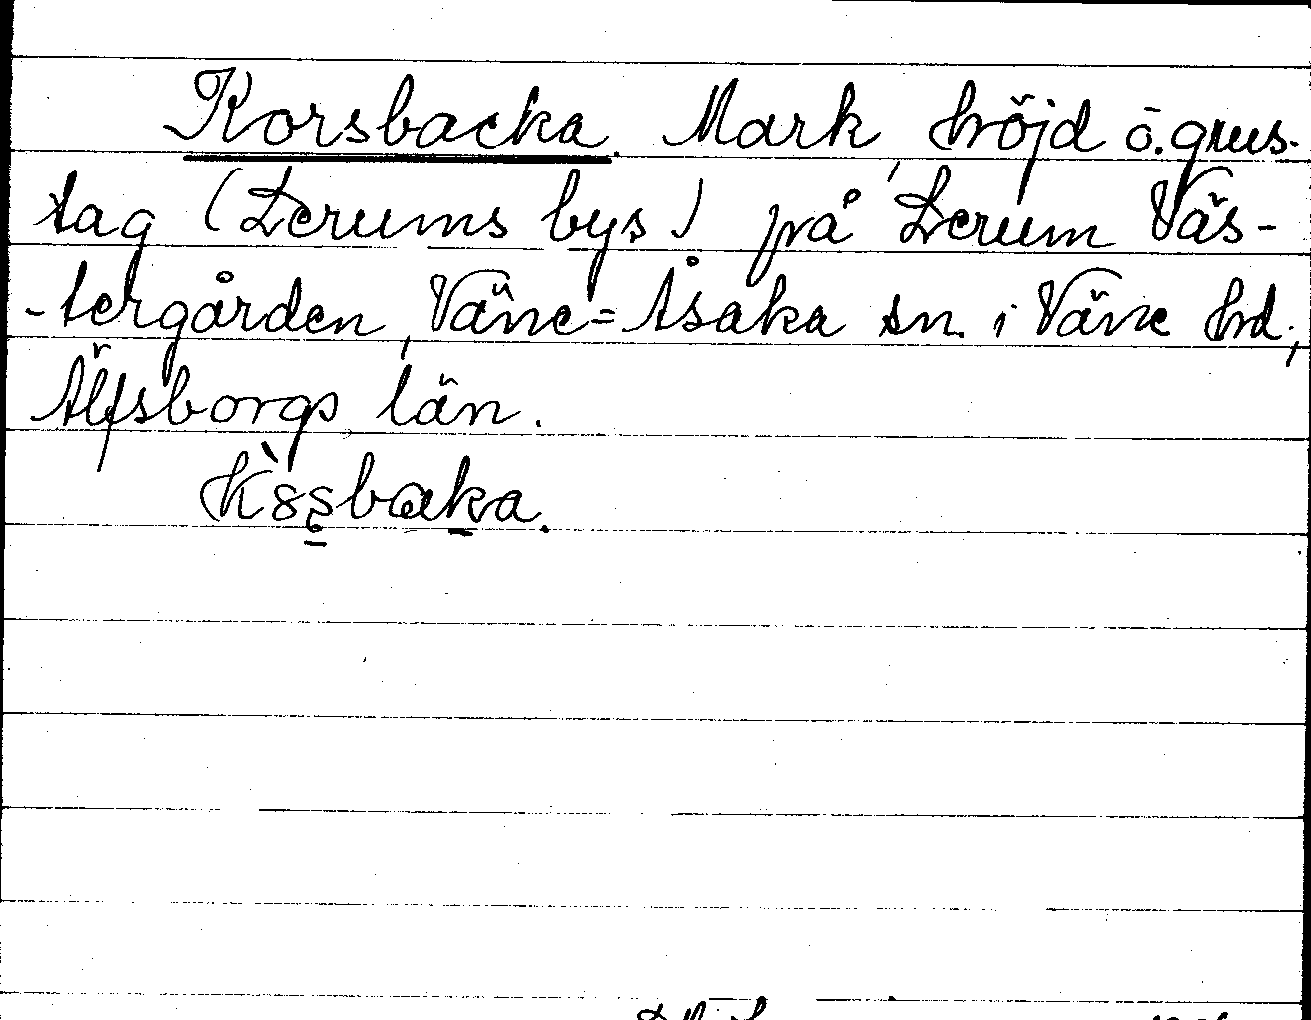 Korsbacka. Mark, höjd o. grus-
tag (Lerums bys) på Lerum Väs-
-tergården, Väne=Åsaka sn. i Väne hd,
Älfsborgs län.